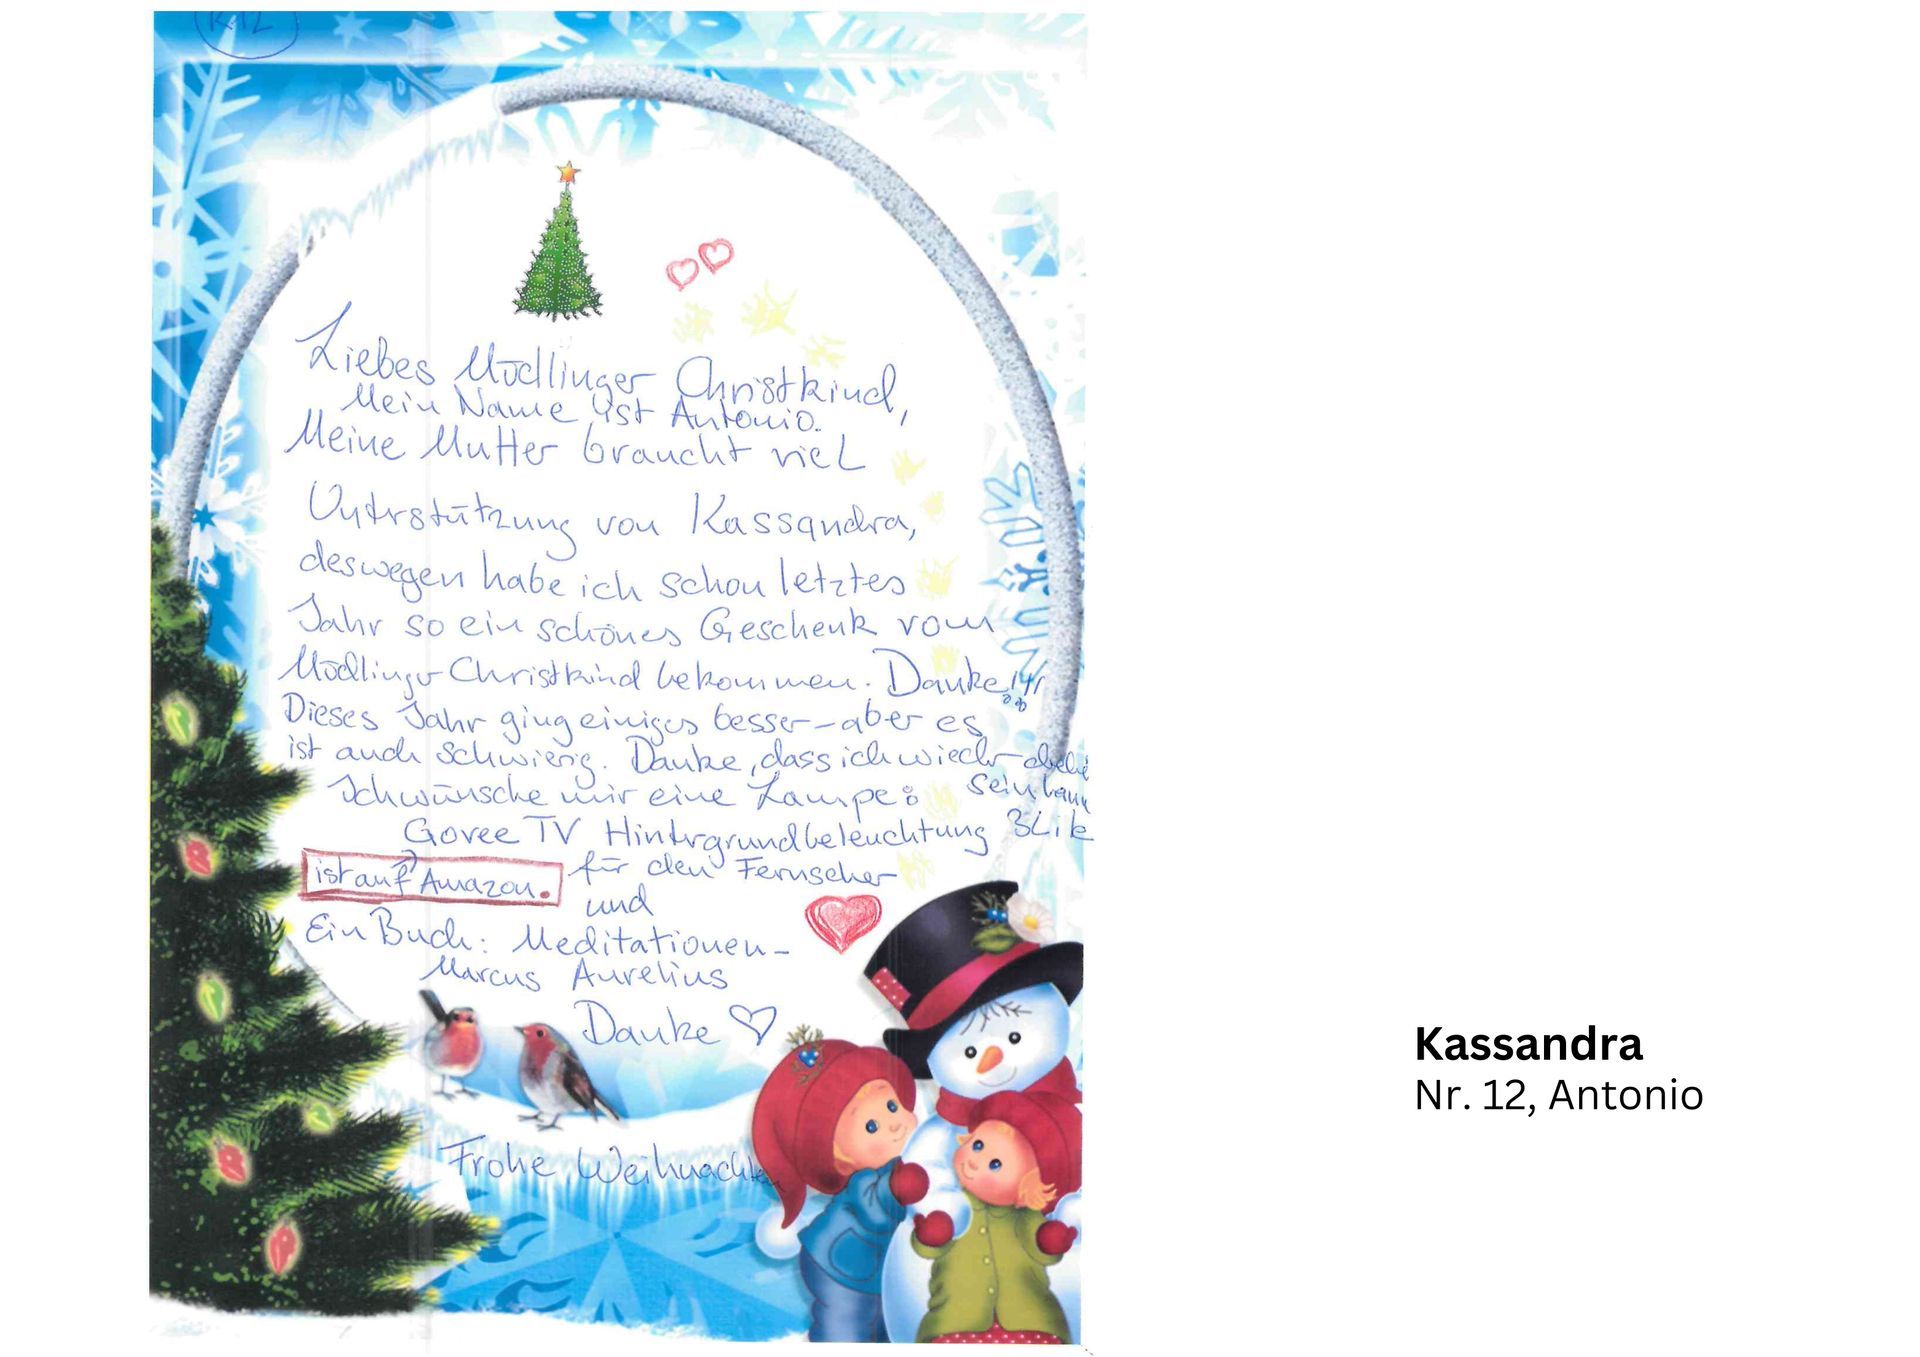 K12
Liebes Mödlinger Christkind,
Mein Name ist Antonio.
Meine Mutter braucht viel
Unterstützung von Kassandra,
deswegen habe ich schon letztes
Jahr so ein schönes Geschenk vom
Mödlinger Christkind bekommen. Danke!!!
Dieses Jahr ging einiges besser - aber es
ist auch schwierig. Danke, dass ich wieder dabei
sein kann
Ich wünsche mir eine Lampe:
Govee TV Hintergrundbeleuchtung 3Lite
ist auf Amazon. für den Fernseher
und
Ein Buch: Meditationen -
Marcus Aurelius
Danke
Frohe Weihnachten
Kassandra
Nr. 12, Antonio